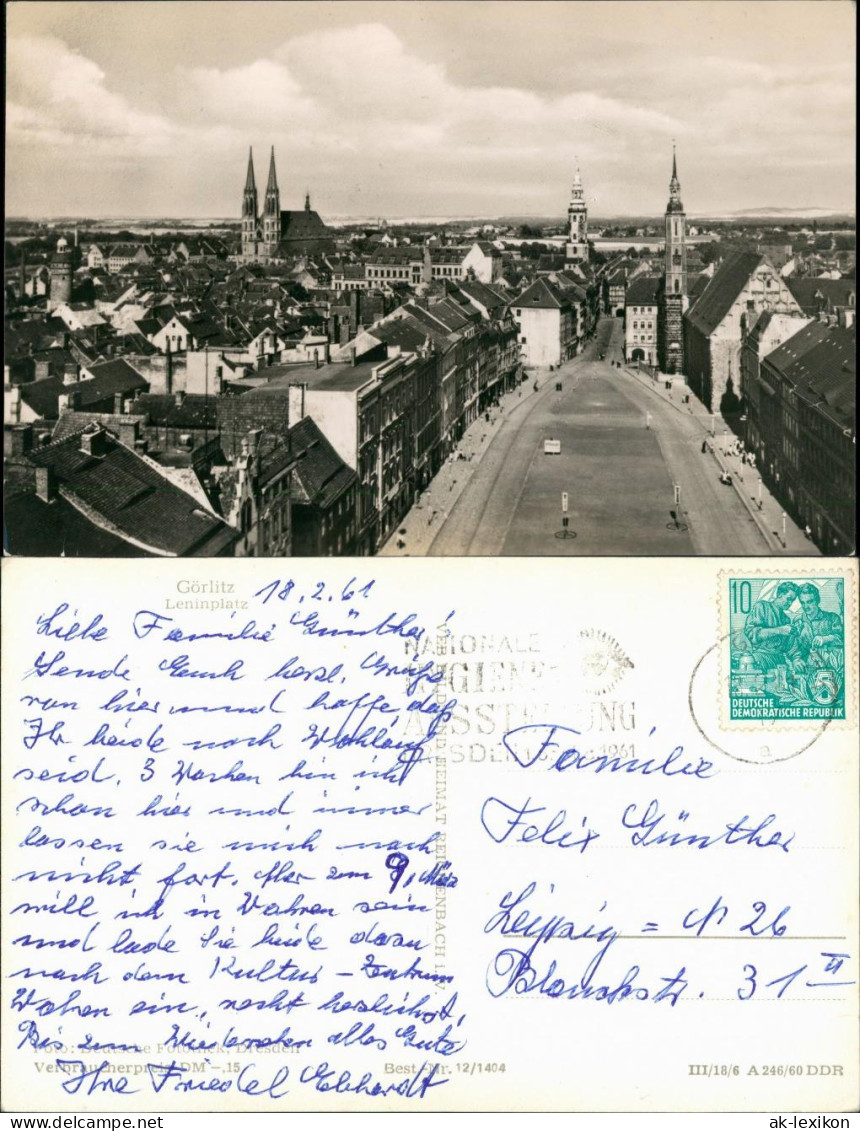 Görlitz
Leninplatz
18.2.61
Liebe Familie Günther!
Sende Euch herzl. Grüße
von hier und hoffe daß
Ihr beide noch Wohlauf
seid. 3 Wochen bin ich
schon hier und immer
lassen sie mich noch
nicht fort. Aber zum 9. März
will ich in Wahren sein
und lade Sie beide dazu
nach dem Kultur-Zentrum
Wahren ein, recht herzlichst,
Bis zum Wiedersehn alles Gute
Ihre Friedel Ebhardt
Foto: Deutsche Fotothek, Dresden
Verbraucherpreis DM -,15
Best.-Nr. 12/1404
VEB BILD UND HEIMAT REICHENBACH i. V.
NATIONALE
HYGIENE
AUSSTELLUNG
DRESDEN 1961
10
5
DEUTSCHE
DEMOKRATISCHE REPUBLIK
a
Familie
Felix Günther
Leipzig = N 26
Blochstr. 31 II
III/18/6 A 246/60 DDR
© ak-lexikon.de
ak-lexikon